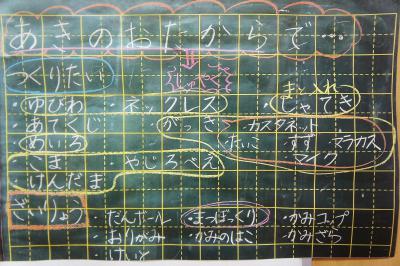 あきのおたからで…
つくりたい
まと入れ
・ゆびわ ・ネックレス ・しゃてき
・あてくじ ・がっき カスタネット
・めいろ たいこ すず マラカス
・こま ・やじろべえ マイク
・けんだま
ざいりょう
・だんボール ・まつぼっくり ・かみコップ
・おりがみ ・かみのはこ ・かみざら
・けいと